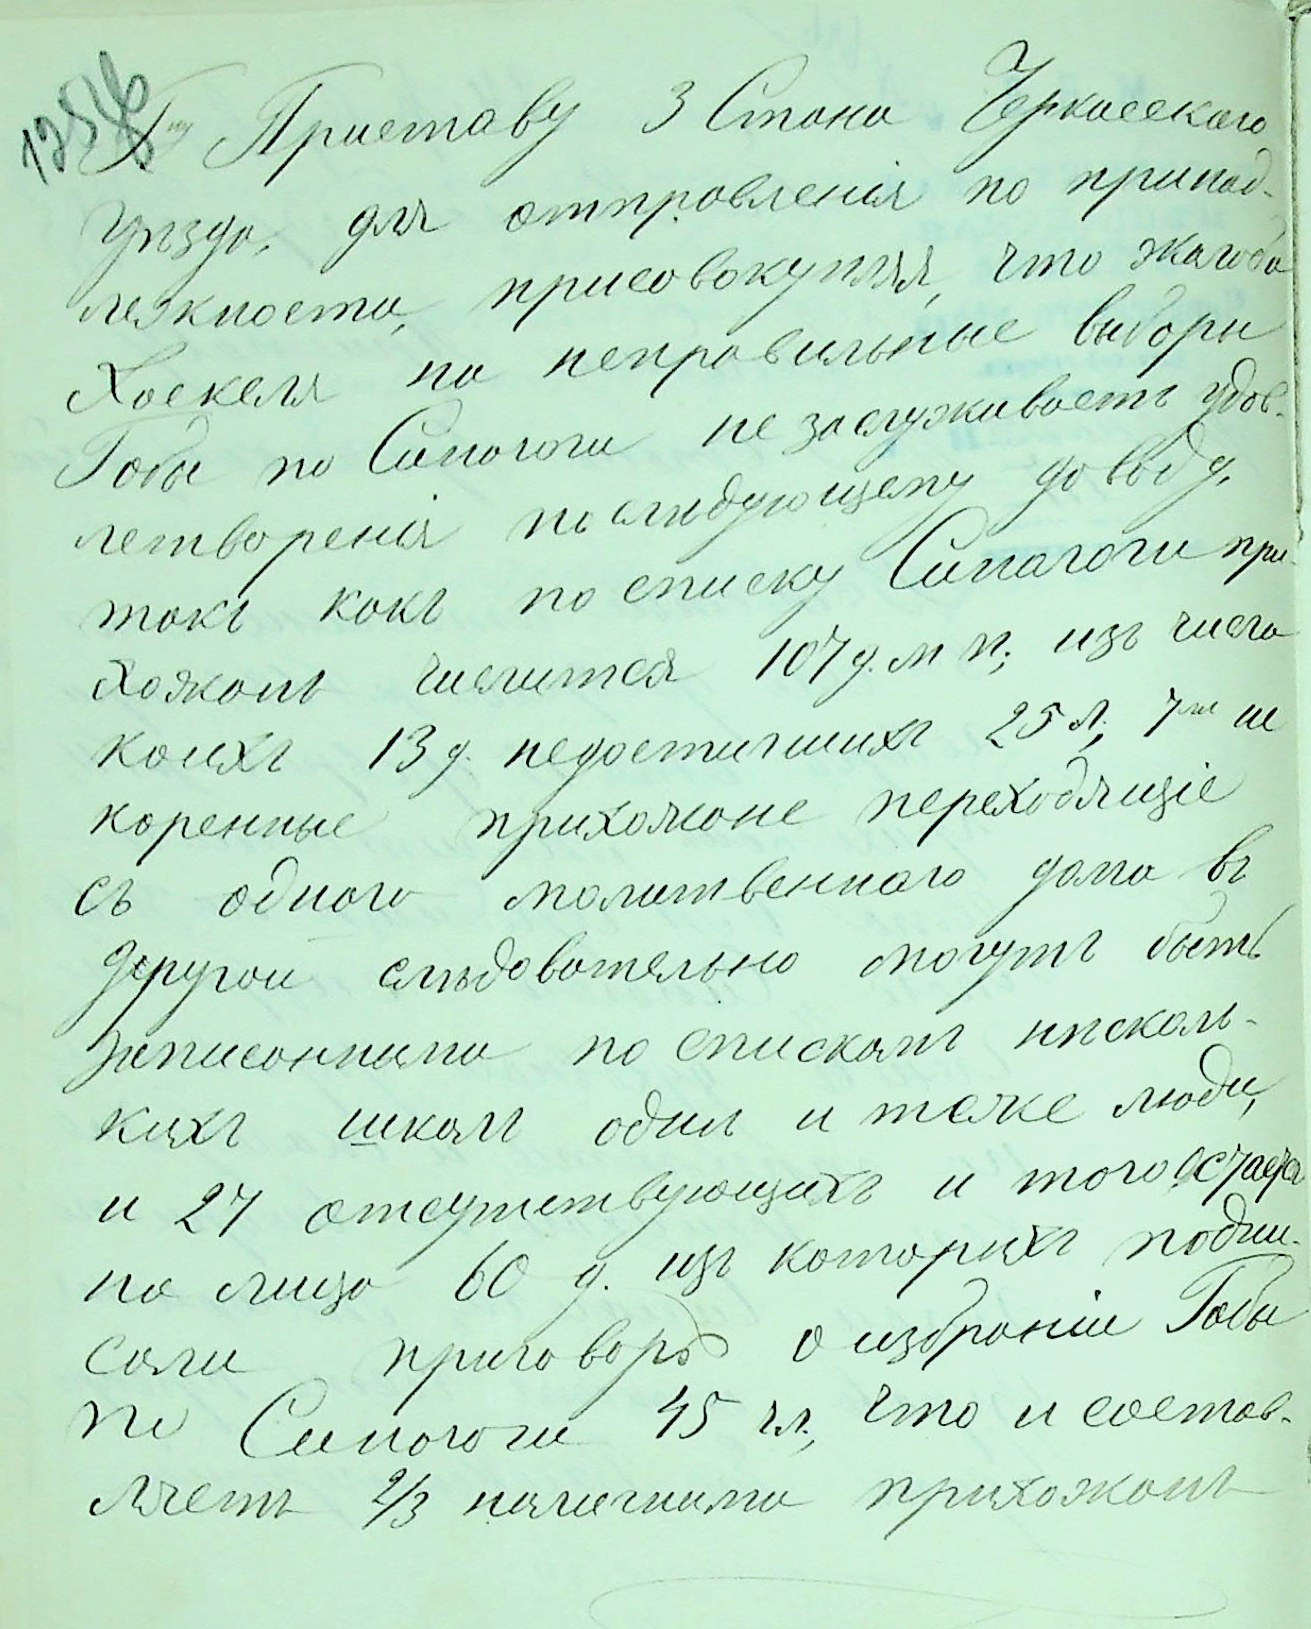 12546
Гну Приставу 3 Стана Черкасскаго
уѣзда, для отправленія по принад-
лежности, присовокупляя, что жалоба
Хаскеля на неправильные выборы
Габы по Синагоги не заслуживаетъ удов-
летворенія по слѣдующему доводу,
такъ какъ по списку Синагоги при-
хожанъ числится 107 д. м п; изъ числа
коихъ 13 д. недостигшихъ 25 л; 7ми не
коренные прихожане переходящіе
съ одного молитвеннаго дома въ
другой слѣдовательно могутъ быть
записанными по спискамъ нѣсколь-
кихъ школъ одни и теже люди,
и 27 отсутствующихъ и того остается
на лицо 60 д. изъ которыхъ подпи-
сали приговоръ о избраніи Габы
по Синагоги 45 чл, что и состав-
ляетъ 2/3 наличными прихожанъ